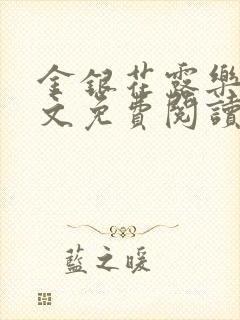 金銀花露樂
文免費閱讀
藍之暖